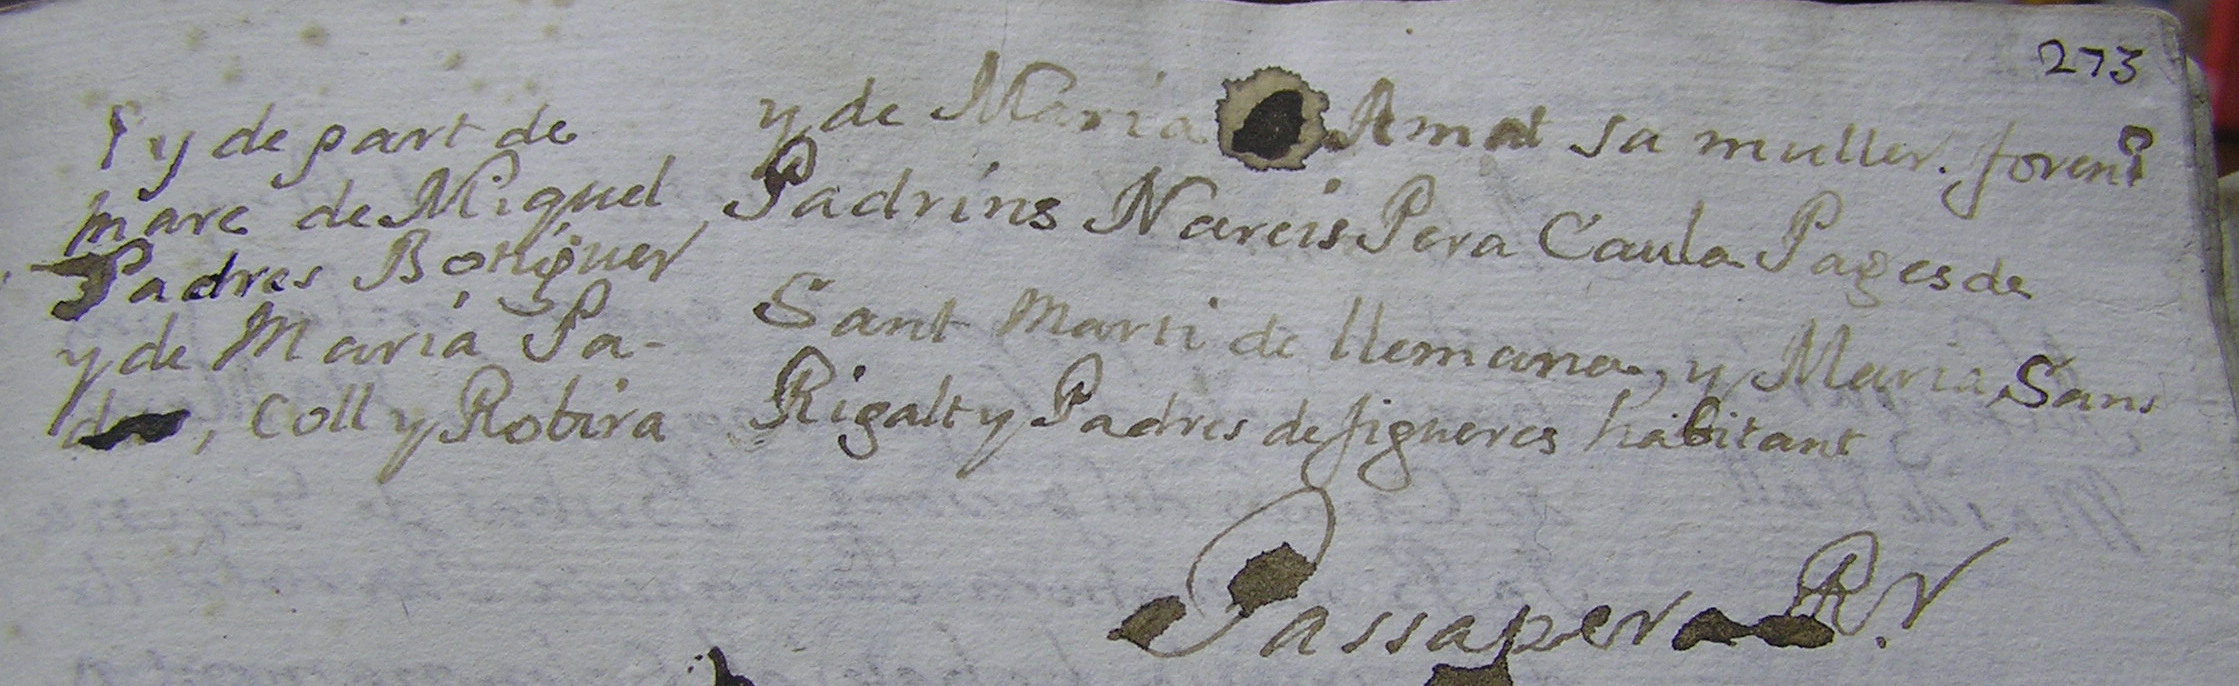 273
y de part de
mare de Miquel
Padres Botiguer
y de Maria Pa-
, Coll y Robira
y de Maria Amat sa muller. foren
Padrins Narcis Pera Caula Pages de
Sant Marti de llemana, y Maria Sans
Rigalt y Padres de figueres habitant
Passapera R.